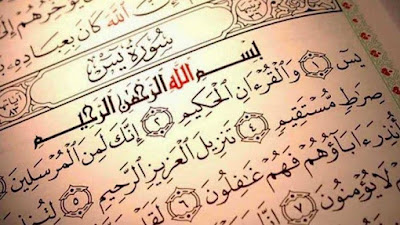 يُؤَخِّرُهُمْ إِلَىٰ
ٱللَّهَ كَانَ بِعِبَادِهِ
سُورَةُ يسٓ
بِسْمِ ٱللَّهِ ٱلرَّحْمَٰنِ ٱلرَّحِيمِ
يسٓ ١ وَٱلْقُرْءَانِ ٱلْحَكِيمِ ٢ إِنَّكَ لَمِنَ ٱلْمُرْسَلِينَ
صِرَٰطٍ مُّسْتَقِيمٍ ٤ تَنزِيلَ ٱلْعَزِيزِ ٱلرَّحِيمِ ٥
أُنذِرَ ءَابَآؤُهُمْ فَهُمْ غَٰفِلُونَ ٦ لَقَدْ
لَا يُؤْمِنُونَ ٧ إِنَّا